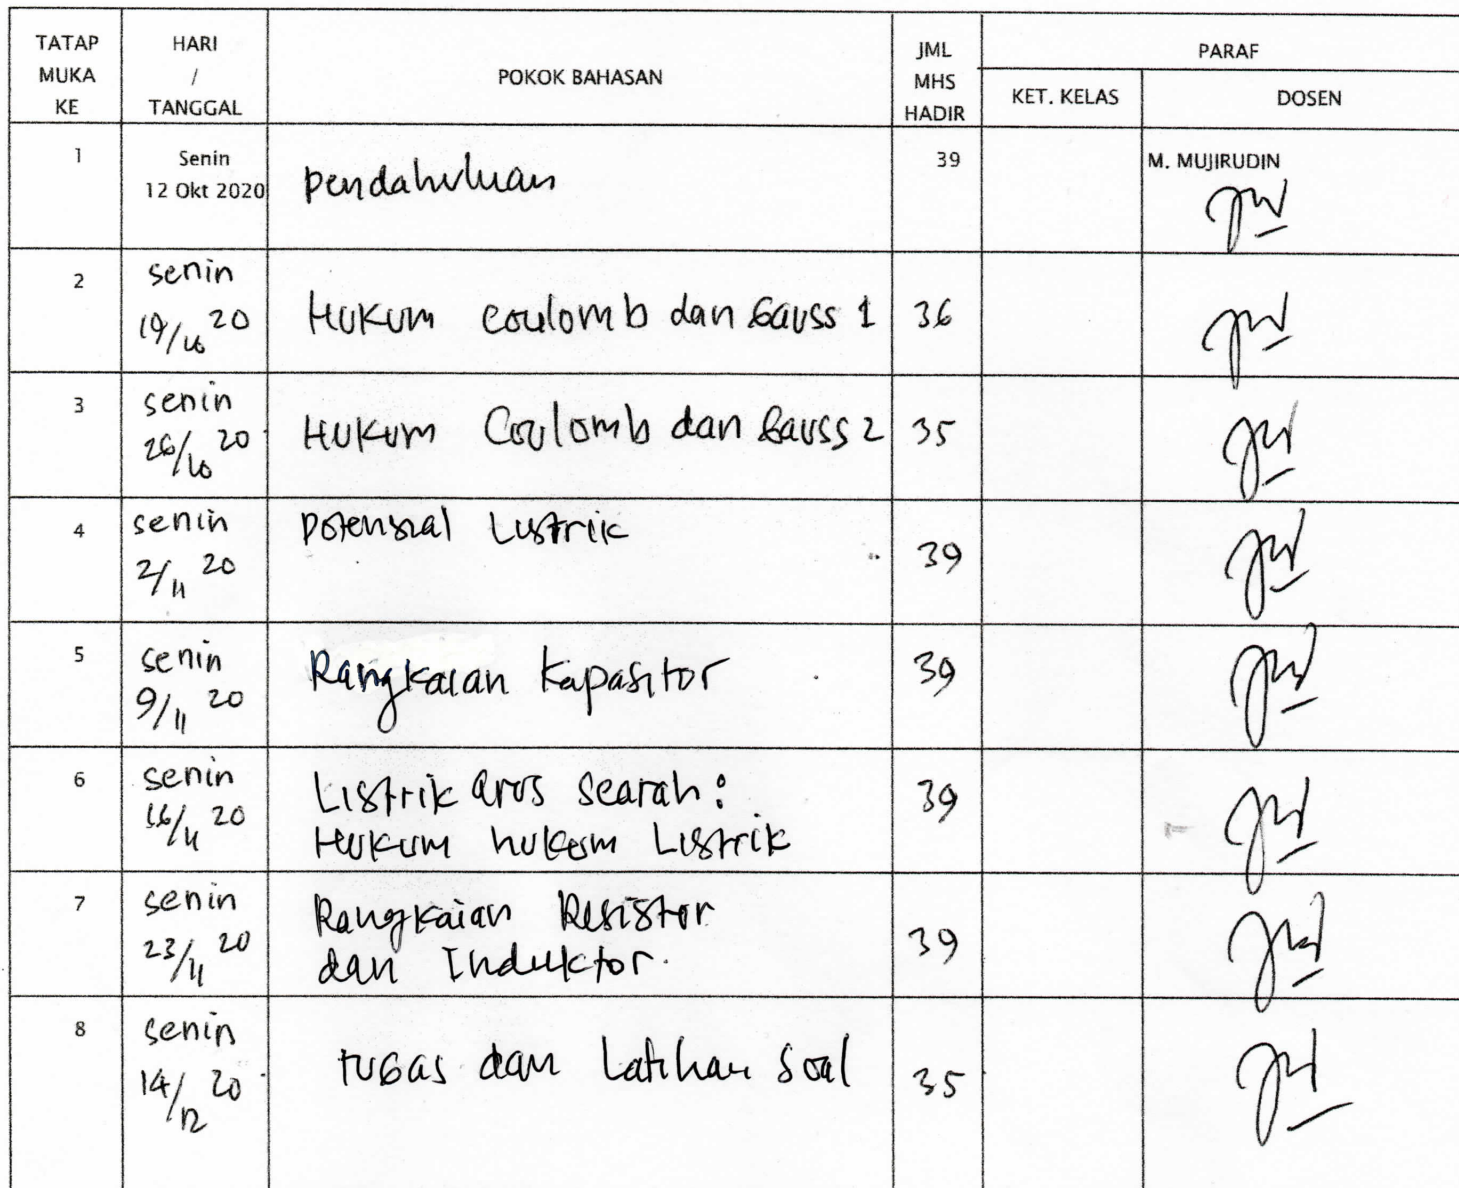 TATAP MUKA KE
HARI / TANGGAL
POKOK BAHASAN
JML MHS HADIR
PARAF
KET. KELAS
DOSEN
1
Senin
12 Okt 2020
pendahuluan
39
M. MUJIRUDIN
2
senin
19/10 20
Hukum coulomb dan Gauss 1
36
3
senin
26/10 20
Hukum Coulomb dan Gauss 2
35
4
senin
2/11 20
potensial Listrik
39
5
senin
9/11 20
Rangkaian Kapasitor
39
6
senin
16/11 20
Listrik arus searah :
Hukum hukum Listrik
39
7
senin
23/11 20
Rangkaian Resistor
dan Induktor.
39
8
senin
14/12 20
tugas dan Latihan Soal
35